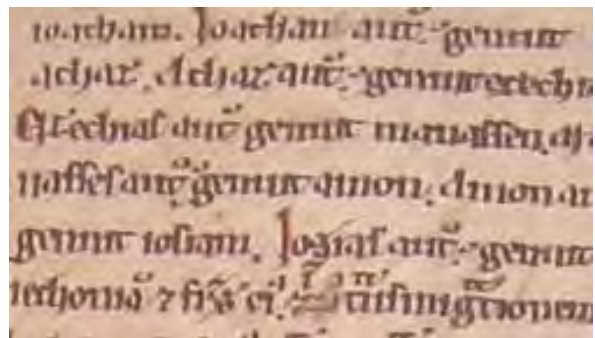 ioatham. Joathan aut̄ genuit
achaz. Achaz aut̄ genuit ezechi
Ezechias aut̄ genuit manassen. Ma
nasses aut̄ genuit amon. Amon au
genuit iosiam. Josias aut̄ genuit
iechoniā ⁊ fr̄s ei᷒ in t̄nsmigͣtionem